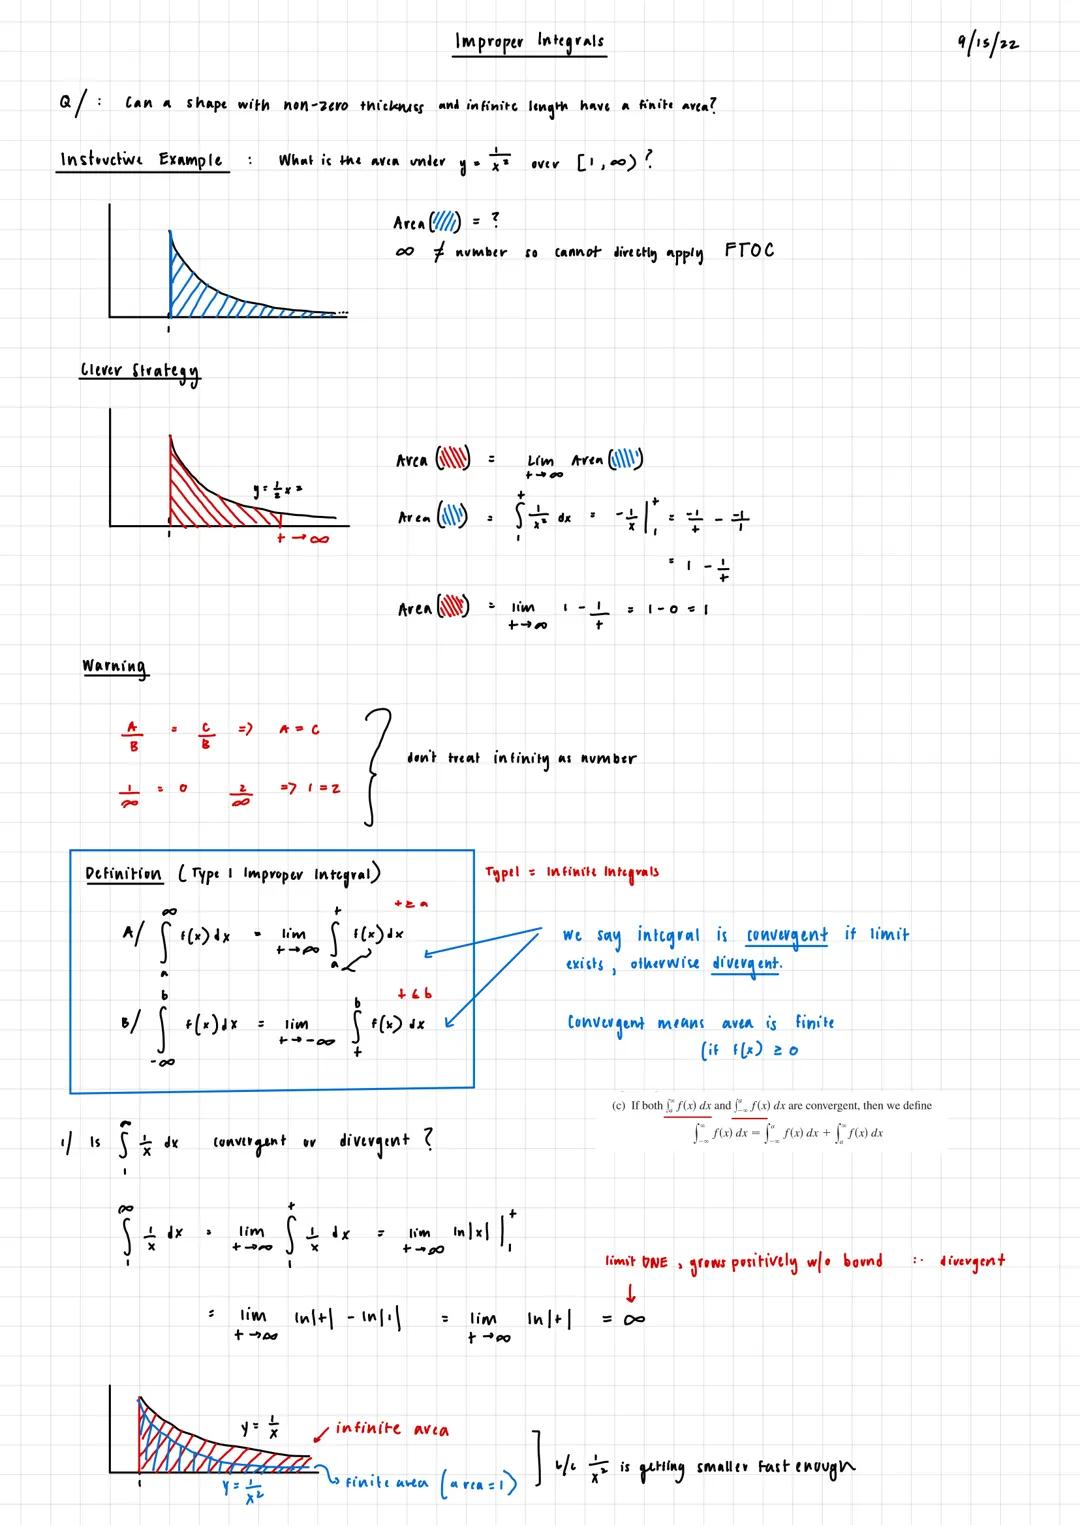 Improper Integrals
9/15/22
Q/ : Can a shape with non-zero thickness and infinite length have a finite area?
Instructive Example : What is the area under y = 1/x² over [1, ∞) ?
Area( ) = ?
∞ ≠ number so cannot directly apply FTOC
1
Clever Strategy
y = 1/2 x 2
1
t → ∞
Area ( ) = Lim t→∞ Area ( )
Area ( ) = ∫₁ᵗ 1/x² dx = -1/x |₁ᵗ = -1/t - -1/1
= 1 - 1/t
Area ( ) = lim t→∞ 1 - 1/t = 1 - 0 = 1
Warning
A/B = C/B => A = C
1/∞ = 0 2/∞ => 1 = 2
don't treat infinity as number
Definition ( Type 1 Improper Integral)
Type1 = Infinite Integrals
A/ ∫ₐ^∞ f(x) dx = lim t→∞ ∫ₐᵗ f(x) dx t ≥ a
B/ ∫₋∞^b f(x) dx = lim t→-∞ ∫ₜ^b f(x) dx t ≤ b
we say integral is convergent if limit
exists , otherwise divergent.
Convergent means area is finite
(if f(x) ≥ 0
(c) If both ∫ₐ^∞ f(x) dx and ∫₋∞^a f(x) dx are convergent, then we define
∫₋∞^∞ f(x) dx = ∫₋∞^a f(x) dx + ∫ₐ^∞ f(x) dx
1/ Is ∫₁^∞ 1/x dx convergent or divergent ?
∫₁^∞ 1/x dx = lim t→∞ ∫₁ᵗ 1/x dx = lim t→∞ ln|x| |₁ᵗ
limit DNE , grows positively w/o bound ∴ divergent
= lim t→∞ ln|t| - ln|1| = lim t→∞ ln|t| = ∞
y = 1/x
infinite area
1
y = 1/x²
finite area (area = 1)
b/c 1/x² is getting smaller fast enough